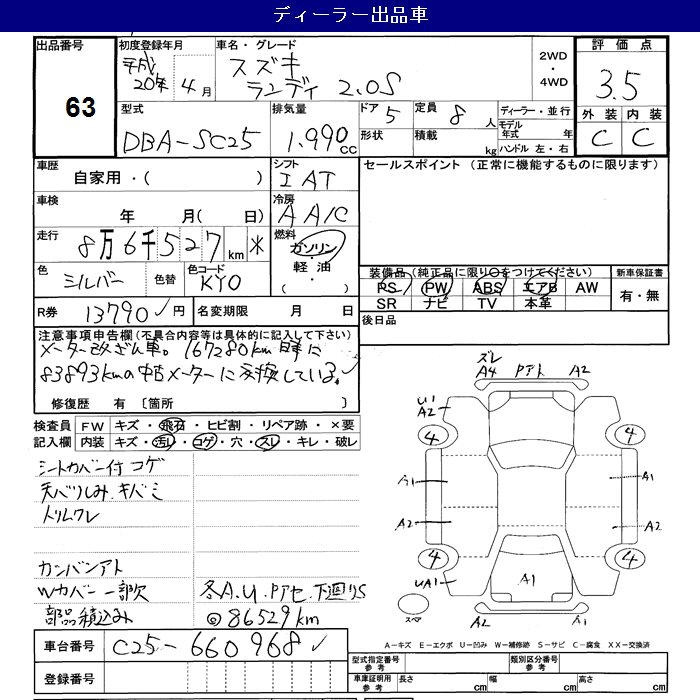 ディーラー出品車
出品番号
63
初度登録年月
平成
20年 4月
車名・グレード
スズキ
ランディ 2.0S
2WD
・
4WD
評価点
3.5
外装 内装
C C
型式
DBA-SC25
排気量
1.990cc
ドア 5
定員 8人
形状
積載 kg
ディーラー・並行
モデル年式 年
ハンドル 左・右
車歴
自家用・( )
シフト
IAT
セールスポイント (正常に機能するものに限ります)
車検
年 月( 日)
冷房
AA/C
走行
8万6千527km *
燃料
ガソリン
・
軽油
・
( )
色
シルバー
色替
色コード
KY0
装備品 (純正品に限り○をつけてください)
PS PW ABS エアB AW
SR ナビ TV 本革
新車保証書
有・無
R券 13790円
名変期限 月 日
後日品
注意事項申告欄(不具合内容等は具体的に記入して下さい)
メーター改ざん車。167280km時に
83893kmの中古メーターに交換している。
修復歴 有 [箇所 ]
検査員
記入欄
FW キズ・飛石・ヒビ割・リペア跡・×要
内装 キズ・汚レ・コゲ・穴・スレ・キレ・破レ
シートカバー付 コゲ
天バリしみ.キバミ
トリムワレ
カンバンアト
Wカバー一部欠
部品積込み
冬A.U.Pアセ.下廻りS
◎86529km
ズレ
A4 Pアト A2
U1
A2
4 4
A1 A1
A2 A2
4 4
UA1 A1
スペア
A2 A1
A-キズ E-エクボ U-凹み W-補修跡 S-サビ C-腐食 XX-交換済
車台番号 C25-660968
登録番号
型式指定番号
参考
類別区分番号
参考
車庫証明用
参考
長さ cm 幅 cm 高さ cm